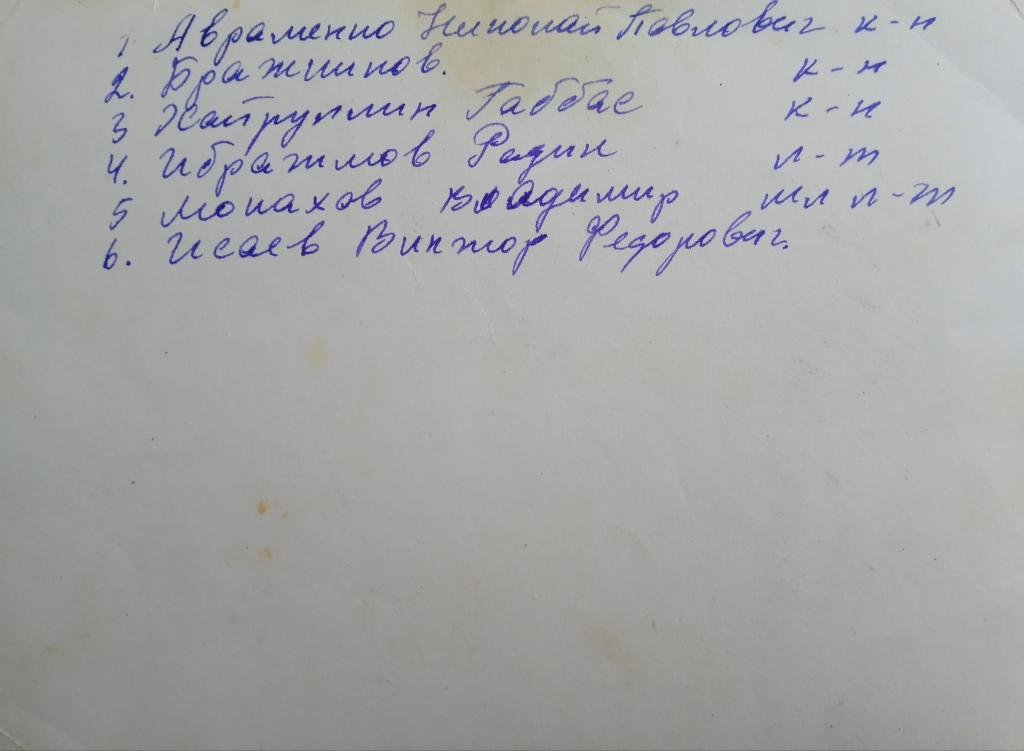 1 Авраменко Николай Павлович к-н
2. Бражников. к-н
3 Хайруллин Габбас к-н
4. Ибражмов Радик л-т
5 Монахов Владимир мл л-т
6. Исаев Виктор Федорович.